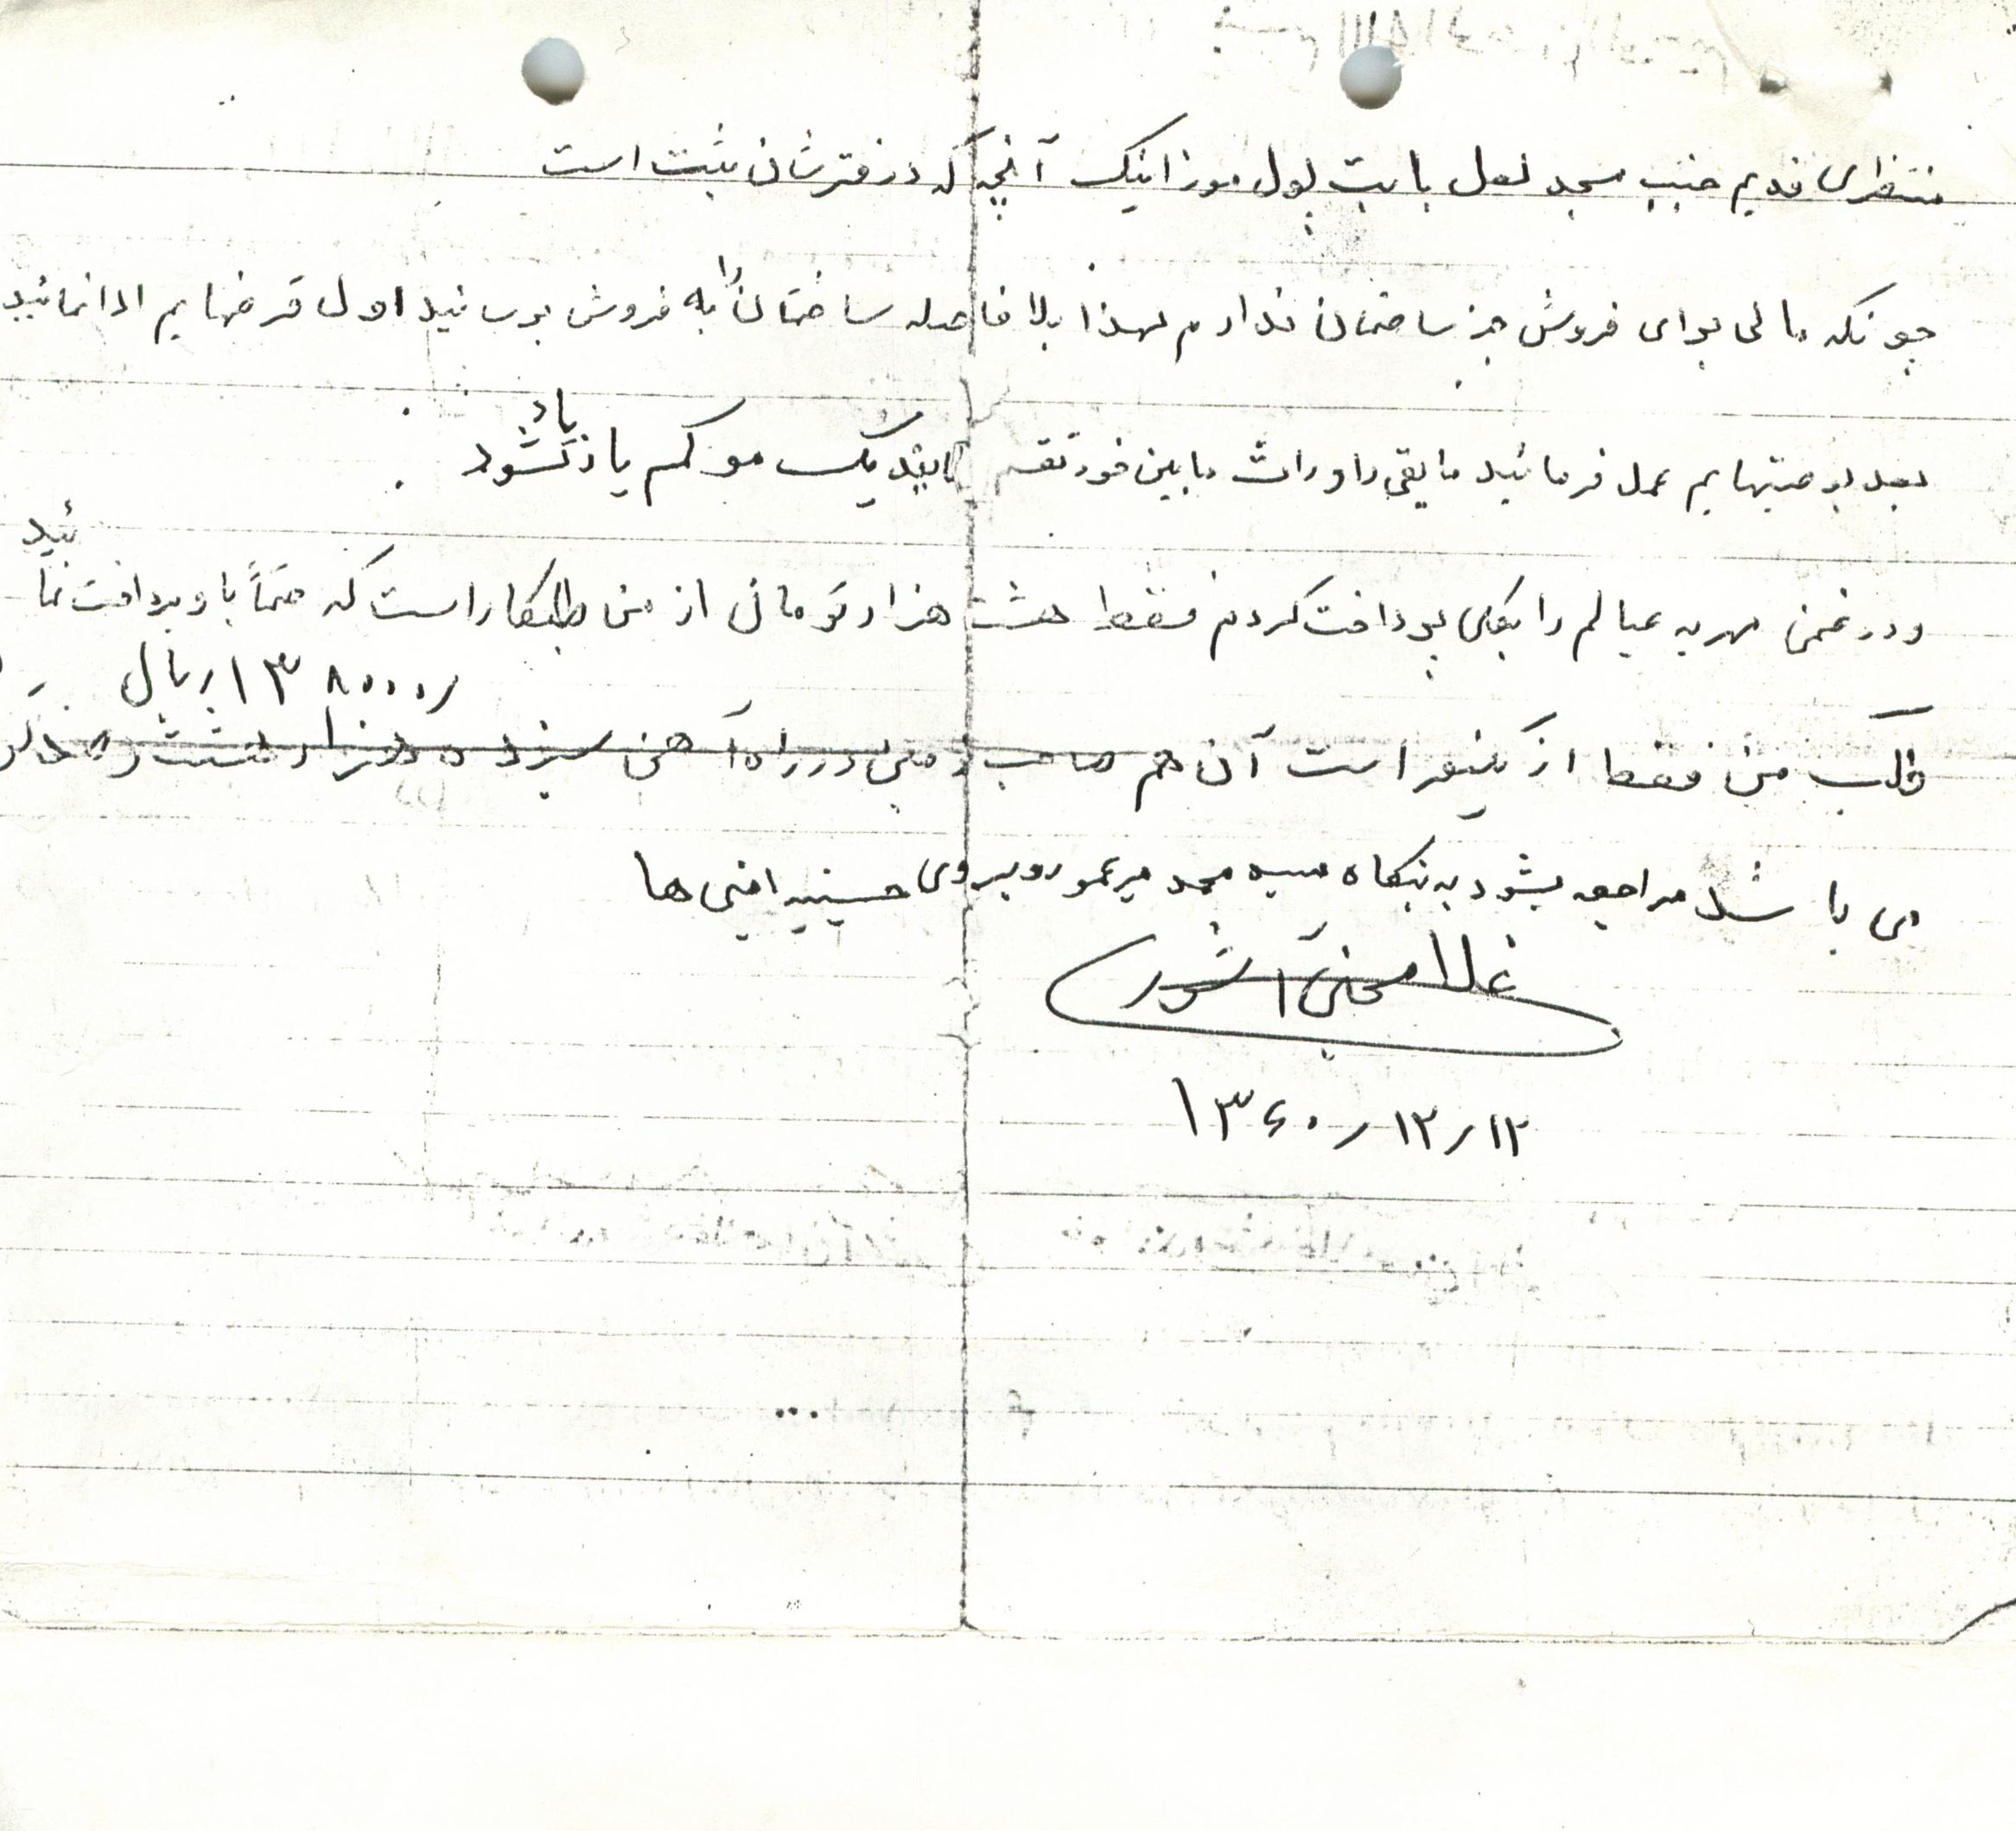 منتظری قدیم جنب مسجد لعل بابت پول موزائیک آنچه که در دفترشان ثبت است
چونکه مالی برای فروش جز ساختمان ندارم لهذا بلا فاصله ساختمان را به فروش برسانید اول قرضهایم ادا نمائید
بعد بوصیتهایم عمل فرمائید مابقی را وراث مابین خود تقسیم نمایند یک مو کم یا زیاد نشود
و در ضمن مهریه عیالم را بکلی پرداخت کردم فقط هشت هزار تومان از من طلبکار است که حتماً باو پرداخت نمائید
۱۳۸۰۰۰ ریال
طلب من فقط از یکنفر است آن هم صاحب زمینی در راه آهن سیزده هزار و هشتصد
می باشد مراجعه بشود به بنگاه سید محمد میرعمو روبروی حسینیه امینی ها
۱۳۶۰/۱۲/۱۲